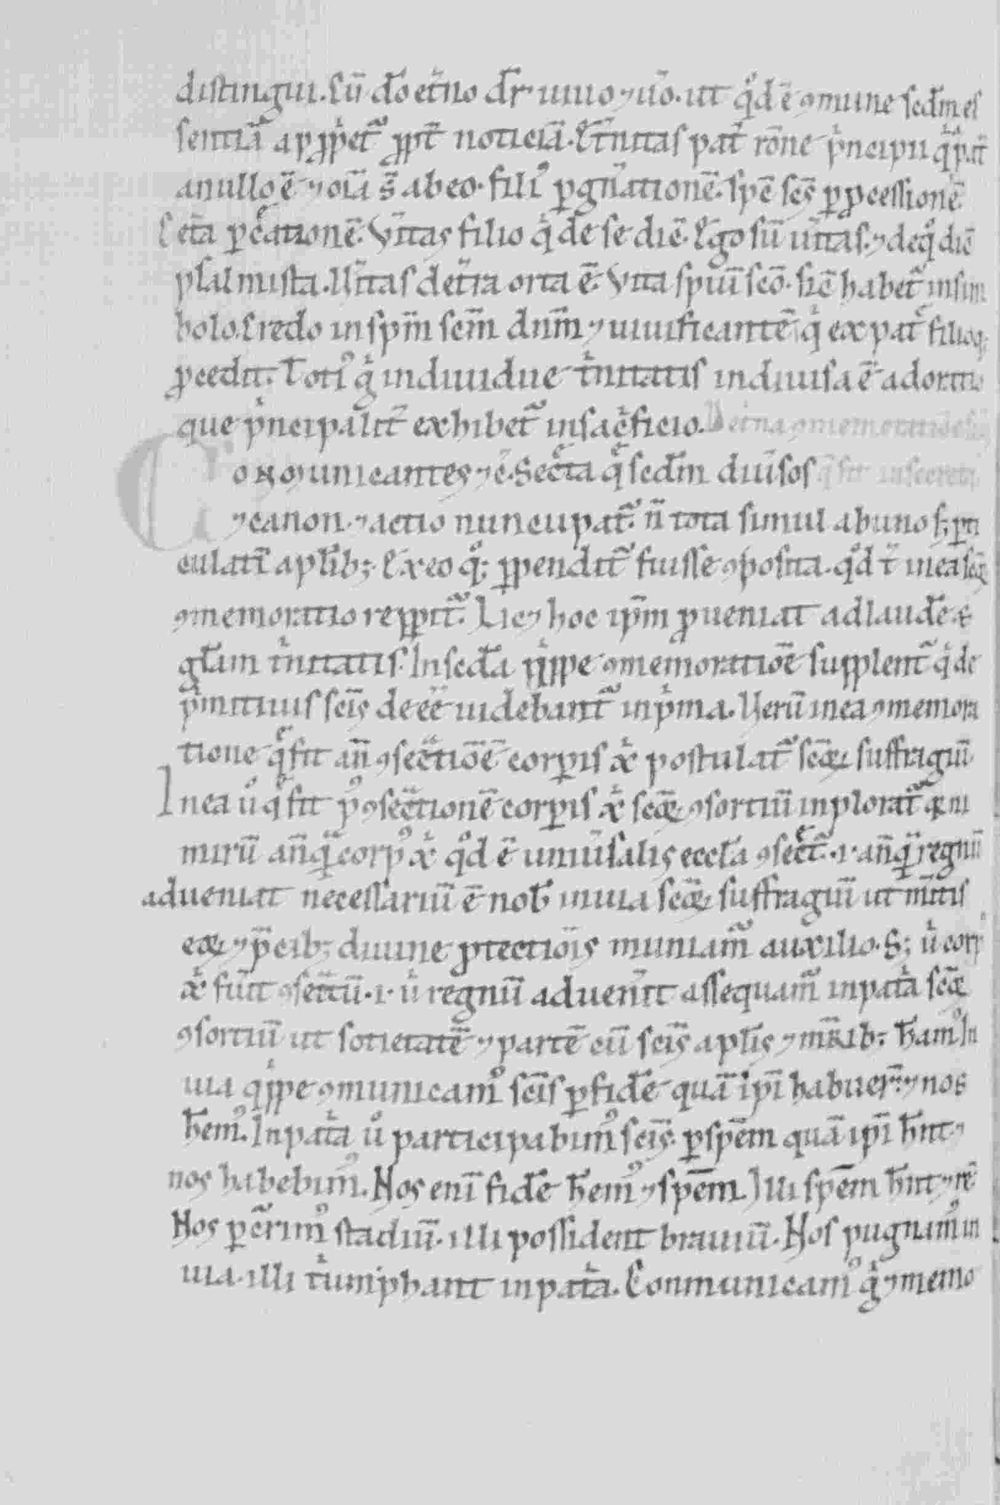 distingui. Cū dō et̃no dr̃ uiuo ⁊ uo. ut qd ē ꝯmune sedm es
sentiā apꝓpet̃ ꝓpt̃ noticiā. Et̃nitas pat̃ rōne pncipii q pat̃
a nullo ē ⁊ oīa s̄ ab eo. fili' ꝑ gñationē. sp̄c sc̄s ꝑ ꝓcessionē
Cet̃a ꝑ c̄ationē. Vitas filio q de se dic̄. Ego sū uitas. ⁊ de q dic̄
psalmista. Vitas de t̃ra orta ē. Vita spiui sc̄o. sic̄ habet̃ in sim
bolo. Credo in sp̄m sc̄m dn̄m ⁊ uiuificantē q ex pat̃ filioq;
ꝓcedit. Toti' g indiuidue t̃nitatis indiuisa ē adoratio
que pncipalit̃ exhibet̃ in sac̄ficio.
Conmunicantes ⁊c̄. Sec̄ta q̄ sedm diuīsos
⁊ canon ⁊ actio nuncupat̃. n̄ tota simul ab uno s; ꝑti
culati aplīb;. Ex eo q; ꝑpendit̃ fuisse ꝯposita. qd̄ t̄ in ea sc̄ꝝ
ꝯmemoratio reꝑit̃. Lic; hoc ipm̄ ꝓueniat ad laudē ⁊
glām t̃nitatis. In sedā qppe ꝯmemoratiōe supplent̃ q de
pmitiuis sc̄is deēē uidebant̃ in pma. Verū in ea ꝯmemora
tione q̄ fit an̄ ꝯsec̄tiōē corꝑis x̄ postulat̃ sc̄oꝝ suffragiū.
In ea ū q̄ fit p' ꝯsec̄tionē corꝑis x̄ sc̄oꝝ ꝯsortiū inplorat̃ qm
mirū anq̄ corp' x̄ qd̄ ē uniūsalis eccl̄a ꝯsec̄t̃. i. anq̄ regnū
adueniat necessariū ē nob̄ in uia sc̄oꝝ suffragiū ut mītis
eoꝝ ⁊ p̄cib; diuine ꝓtectiōīs muniam̃ auxilio. S; ū corp'
x̄ fūit ꝯsec̄tū. i. ū regnū aduen̄it assequam̃ in pat̃a sc̄oꝝ
ꝯsortiū ut sotietatē ⁊ partē cū sc̄is apl̄is ⁊ mr̄ib; h̄am'. In
uia qppe ꝯmunicam' sc̄is ꝑ fidē quā ipī habuer̄ ⁊ nos
h̄em'. In pat̃a ū participabim' sc̄is. ꝑ spēm quā ipī h̄nt ⁊
nos habebim'. Nos enī fidē h̄em' ⁊ spēm. Illi spēm h̄nt ⁊ rē
Nos ꝑc̄rim' stadiū. illi possident brauiū. Nos pugnam' in
uia. illi t̃umphant in pat̃a. Conmunicam' g ⁊ memo